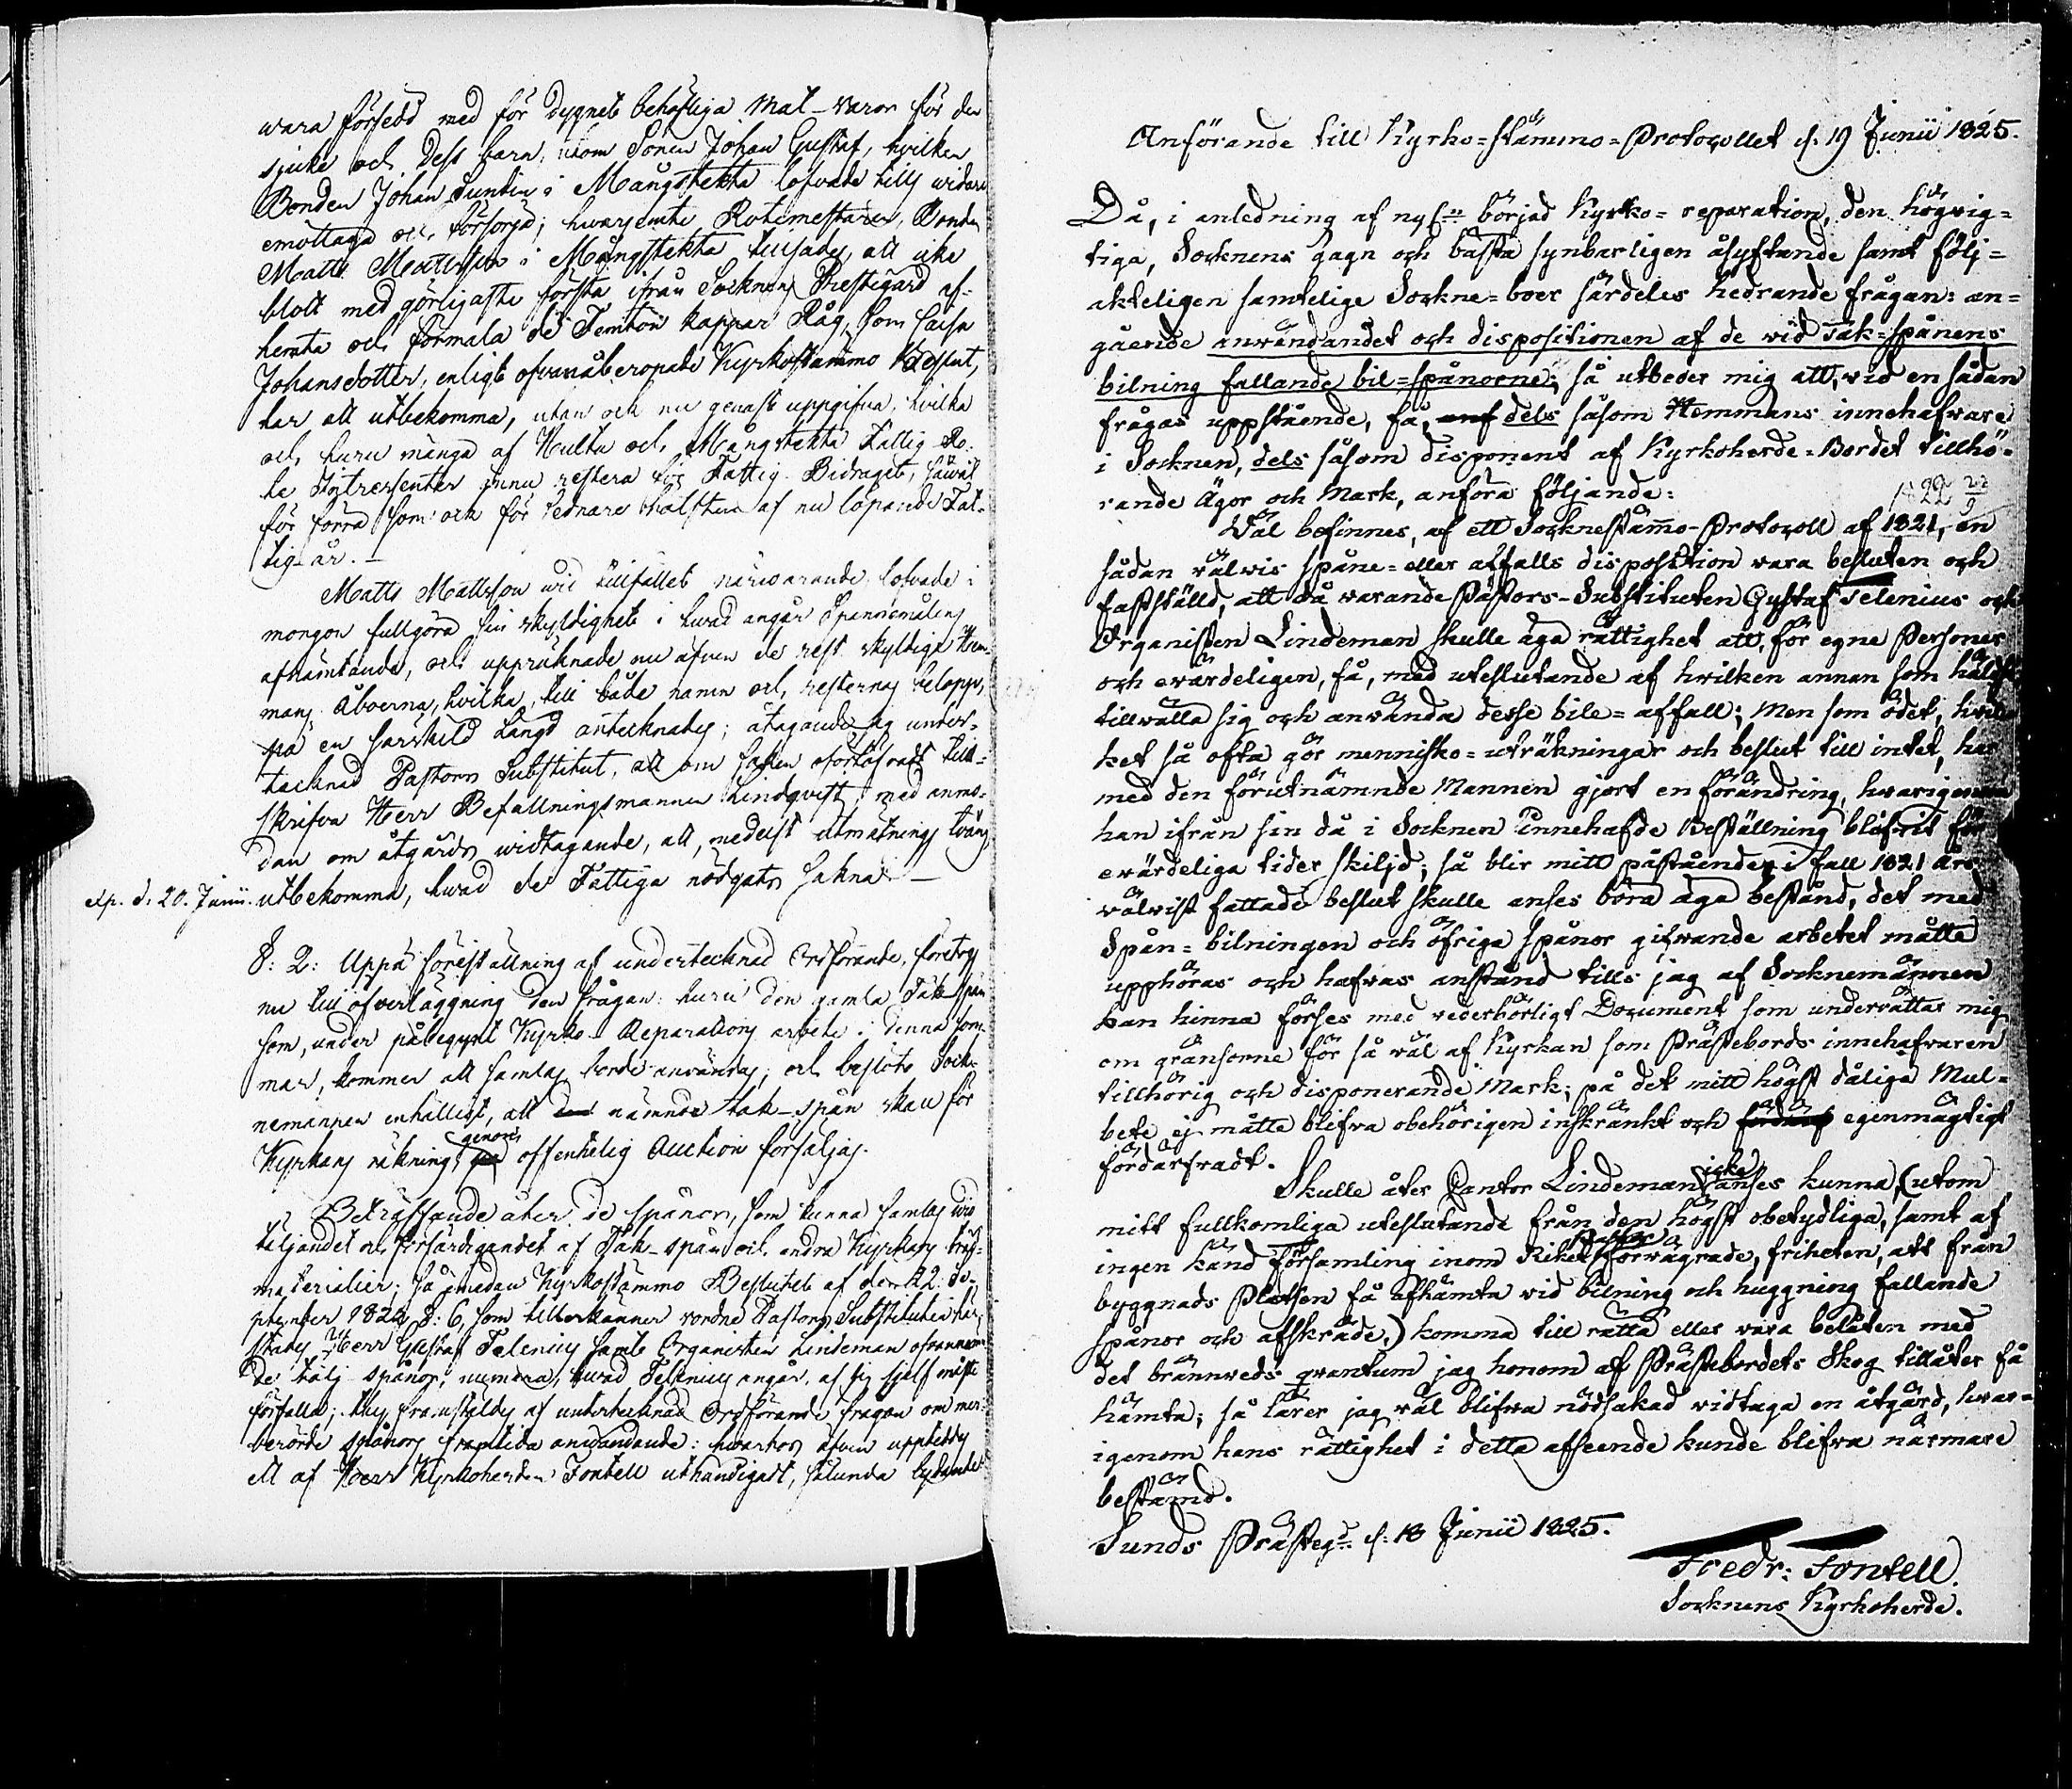 wara försedd med för dygnet behöfliga Mat-waror för den
sjuke och dess barn, utom Sonen Johan Gustaf, hvilken
Bonden Johan Sundin i Mångstekta lofvade tills widare
emottaga och försörja; hwarjemte Rotemästaren, Bonden
Matts Mattsson i Mångstekta tillsades, att icke
blott med görligaste första ifrån Socknens Prestegård af-
hemta och förmala de Femton kappar Råg, som Caisa
Johansdotter, enligt ofvanåberopade Kyrkostämmo Beslut,
har att utbekomma, utan och nu genast uppgifva, hvilka
och huru många af Hulta och Mångstekta Fattig-Ro-
te Intressenter ännu restera sig Fattig-Bidraget, såwäl
för förra som ock för sednare hälften af nu löpande Fat-
tig-år. —
Matts Mattsson wid tillfället närwarande lofvade i
morgon fullgöra sin skyldighet i hwad angår Spannemålens
afhämtande, och uppräknade nu äfven de rest skyldige Hem-
mans Åboerna, hvilka, till både namn och resternas belopp,
på en särskild Längd antecknades; åtagande sig under-
tecknad Pastors Substitut, att om saken oförtöfvadt till-
skrifva Herr Befallningsmannen Lindqvist, med anmo-
dan om åtgärds widtagande, att, medelst utmätnings twång,
exp. d. 20. Junii. utbekomma, hwad de Fattiga nödgats sakna —
§: 2: Uppå föreställning af undertecknad Ordförande, företogs
nu till öfverläggning den frågan: huru den gamla Tak-spån
som, under påbegynt Kyrko-Reparations arbete i denna som-
mar, kommer att samlas, borde användas; och beslöto Sock-
nemannen enhälligt, att den nämnde tak-spån skall för
Kyrkans räkning genom offentelig Auction försäljas.
Beträffande åter de spånor, som kunna samlas wid
täljandet och förfärdigandet af Tak-spån och andra Kyrkans bygg-
materialier; så emedan Kyrkostämmo Beslutet af den 22 Se-
ptember 1822 §: 6, som tillerkänner wordne Pastors Substituten här-
städes Herr Gustaf Telenius samt Organisten Lindeman ofvannämn-
de tälj spånor, numera, hwad Telenius angår, af sig sjelf måste
förfalla; thy framställdes af undertecknad Ordförande frågan om mer-
berörde spånors framtida användande: hwarhos äfven upplästes
ett af Herr Kyrkoherden Fontell uthändigadt, sålunda lydande
Anförande till Kyrko=stämmo=Protocollet d. 19 Junii 1825.
Då, i anledning af nyss börjad Kyrko=reparation, den högvig=
tiga, Socknens gagn och bästa synbarligen åsyftande samt följ=
akteligen samtelige Sockne=boer särdeles hedrande frågan: an=
gående användandet och dispositionen af de wid Tak=spånens
bilning fallande bil=spånorne; så utbeder mig att, vid en sådan
frågas uppstående, få, anf dels såsom Hemmans innehafvare
i Socknen, dels såsom disponent af Kyrkoherde=Bordet tillhö=
rande Ägor och Mark, anföra följande:
1822 22/9
Väl befinnes, af ett Socknestämo-Protocoll af 1821, en
sådan välvis spåne=eller affalls disposition vara besluten och
fastställd, att då varande Pastors-Substituten Gustaf Telenius och
Organisten Lindeman skulle äga rättighet att, för egne Personer
och evärdeligen, få, med uteslutande af hvilken annan som hälst
tillvälla sig och använda desse bile=affall; Men som ödet, hvil
ket så ofta gör mennisko=uträkningar och beslut till intet, har
med den förutnämnde Mannen gjort en förändring, hvarigenom
han ifrån sin då i Socknen innehafde Beställning blifvit för
evärdeliga tider skiljd; så blir mitt påstående, i fall 1821 års
välvist fattade beslut skulle anses böra äga bestånd, det med
Spån=bilningen och öfriga spånor gifvande arbetet måtte
upphöras och hafvas anstånd tills jag af Socknemännen
kan hinna förses med vederbörligt Document som underrättar mig
om gränsorne för så väl af Kyrkan som Prästebords innehafvaren
tillhörig och disponerande Mark; på det mitt högst dåliga Mul=
bete ej måtte blifva obehörigen inskränkt och egenmägtigt
fördärfvadt.
Skulle åter Cantor Lindeman icke anses kunna, (utom
mitt fullkomliga uteslutande från den högst obetydliga, samt af
ingen känd församling inom Riket Pastor förvägrade, friheten, att från
byggnads Platsen få afhämta vid bilning och huggning fallande
spånor och afskräde,) komma till rätta eller vara belåten med
det brännveds qvantum jag honom af Prästebordets Skog tillåter få
hämta; så lärer jag väl blifva nödsakad vidtaga en åtgärd, hvar=
igenom hans rättighet i detta afseende kunde blifva närmare
bestämd.
Sunds Prästegd d. 18 Junii 1825.
Fredr: Fontell.
Socknens Kyrkoherde.